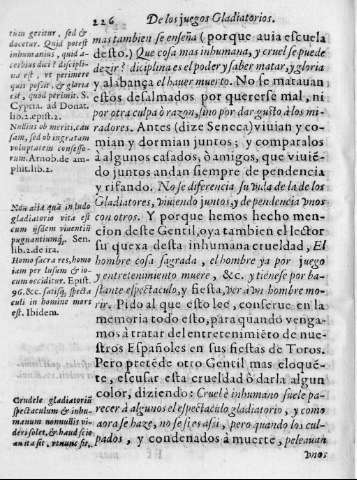 226 De los juegos Gladiatorios.
mas tambien se enseña (porque auia escuela
desto.) Que cosa mas inhumana, y cruel se puede
dezir? diciplina es el poder y saber matar, y gloria
y alabança el hauer muerto. No se matauan
estos desalmados por quererse mal, ni
por otra culpa ò razon, sino por dar gusto à los mi-
radores. Antes (dize Seneca) viuian y co-
mian y dormian juntos; y comparalos
à algunos casados, ò amigos, que viuiẽ-
do juntos andan siempre de pendencia
y rifando. No se diferencia su vida de la de los
Gladiatores, viuiendo juntos, y de pendencia vnos
con otros. Y porque hemos hecho men-
cion deste Gentil, oya tambien el lector
su quexa desta inhumana crueldad, El
hombre cosa sagrada, el hombre ya por juego
y entretenimiento muere, &c. y tienese por ba-
stante espectaculo, y fiesta, ver à vn hombre mo-
rir. Pido al que esto lee, conserue en la
memoria todo esto, para quando venga-
mos à tratar del entretenimiẽto de nue-
stros Españoles en sus fiestas de Toros.
Pero pretẽde otro Gentil mas eloquẽ-
te, escusar esta crueldad ò darla algun
color, diziendo: Cruel è inhumano suele pa-
recer à algunos el espectaculo gladiatorio, y como
aora se haze, no se si es assi, pero quando los cul-
pados, y condenados à muerte, peleauan
vnos
tium geritur, sed &
docetur. Quid potest
inhumanius, quid a-
cerbius dici? discipli-
na est, vt perimere
quis possit, & gloria
est, quod peremit. S.
Cypria. ad Donat.
lib. 2. epist. 2.
Nullius ob meriti, cau
sam, sed ob ingratam
voluptatem confesso-
rum. Arnob. de am-
phit. lib. 2.
Nõn alia quã in ludo
gladiatorio vita est
cum ijsdem viuentiũ
pugnantiumq́. Sen.
lib. 2. de ira.
Homo sacra res, homo
iam per lusum & io-
cum occiditur. Epist.
96. &c. satisq́; specta
culi in homine mors
est. Ibidem.
Crudele gladiatoriũ
spectaculum & inhu-
manum nonnullis vi-
deri solet, & haud scio
an ita sit, vt nunc fit,